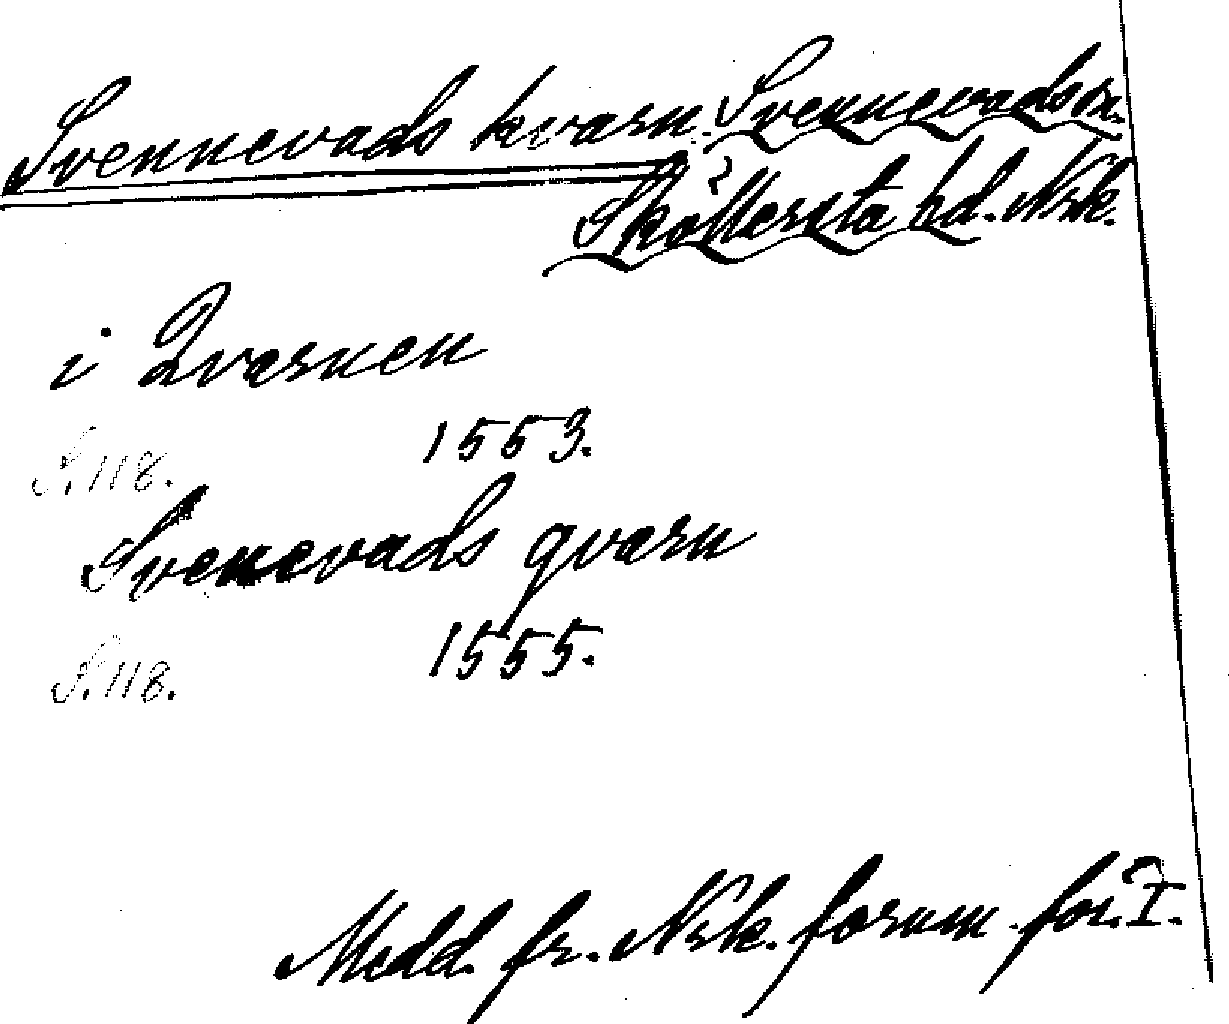 Svennevads kvarn. Svennevads sn.
Sköllersta hd. Nrk.
i Qvarnen
1553.
S. 118.
Svenevads qvarn
1555.
S. 118.
Medd. fr. Nrk. fornm.för. I.